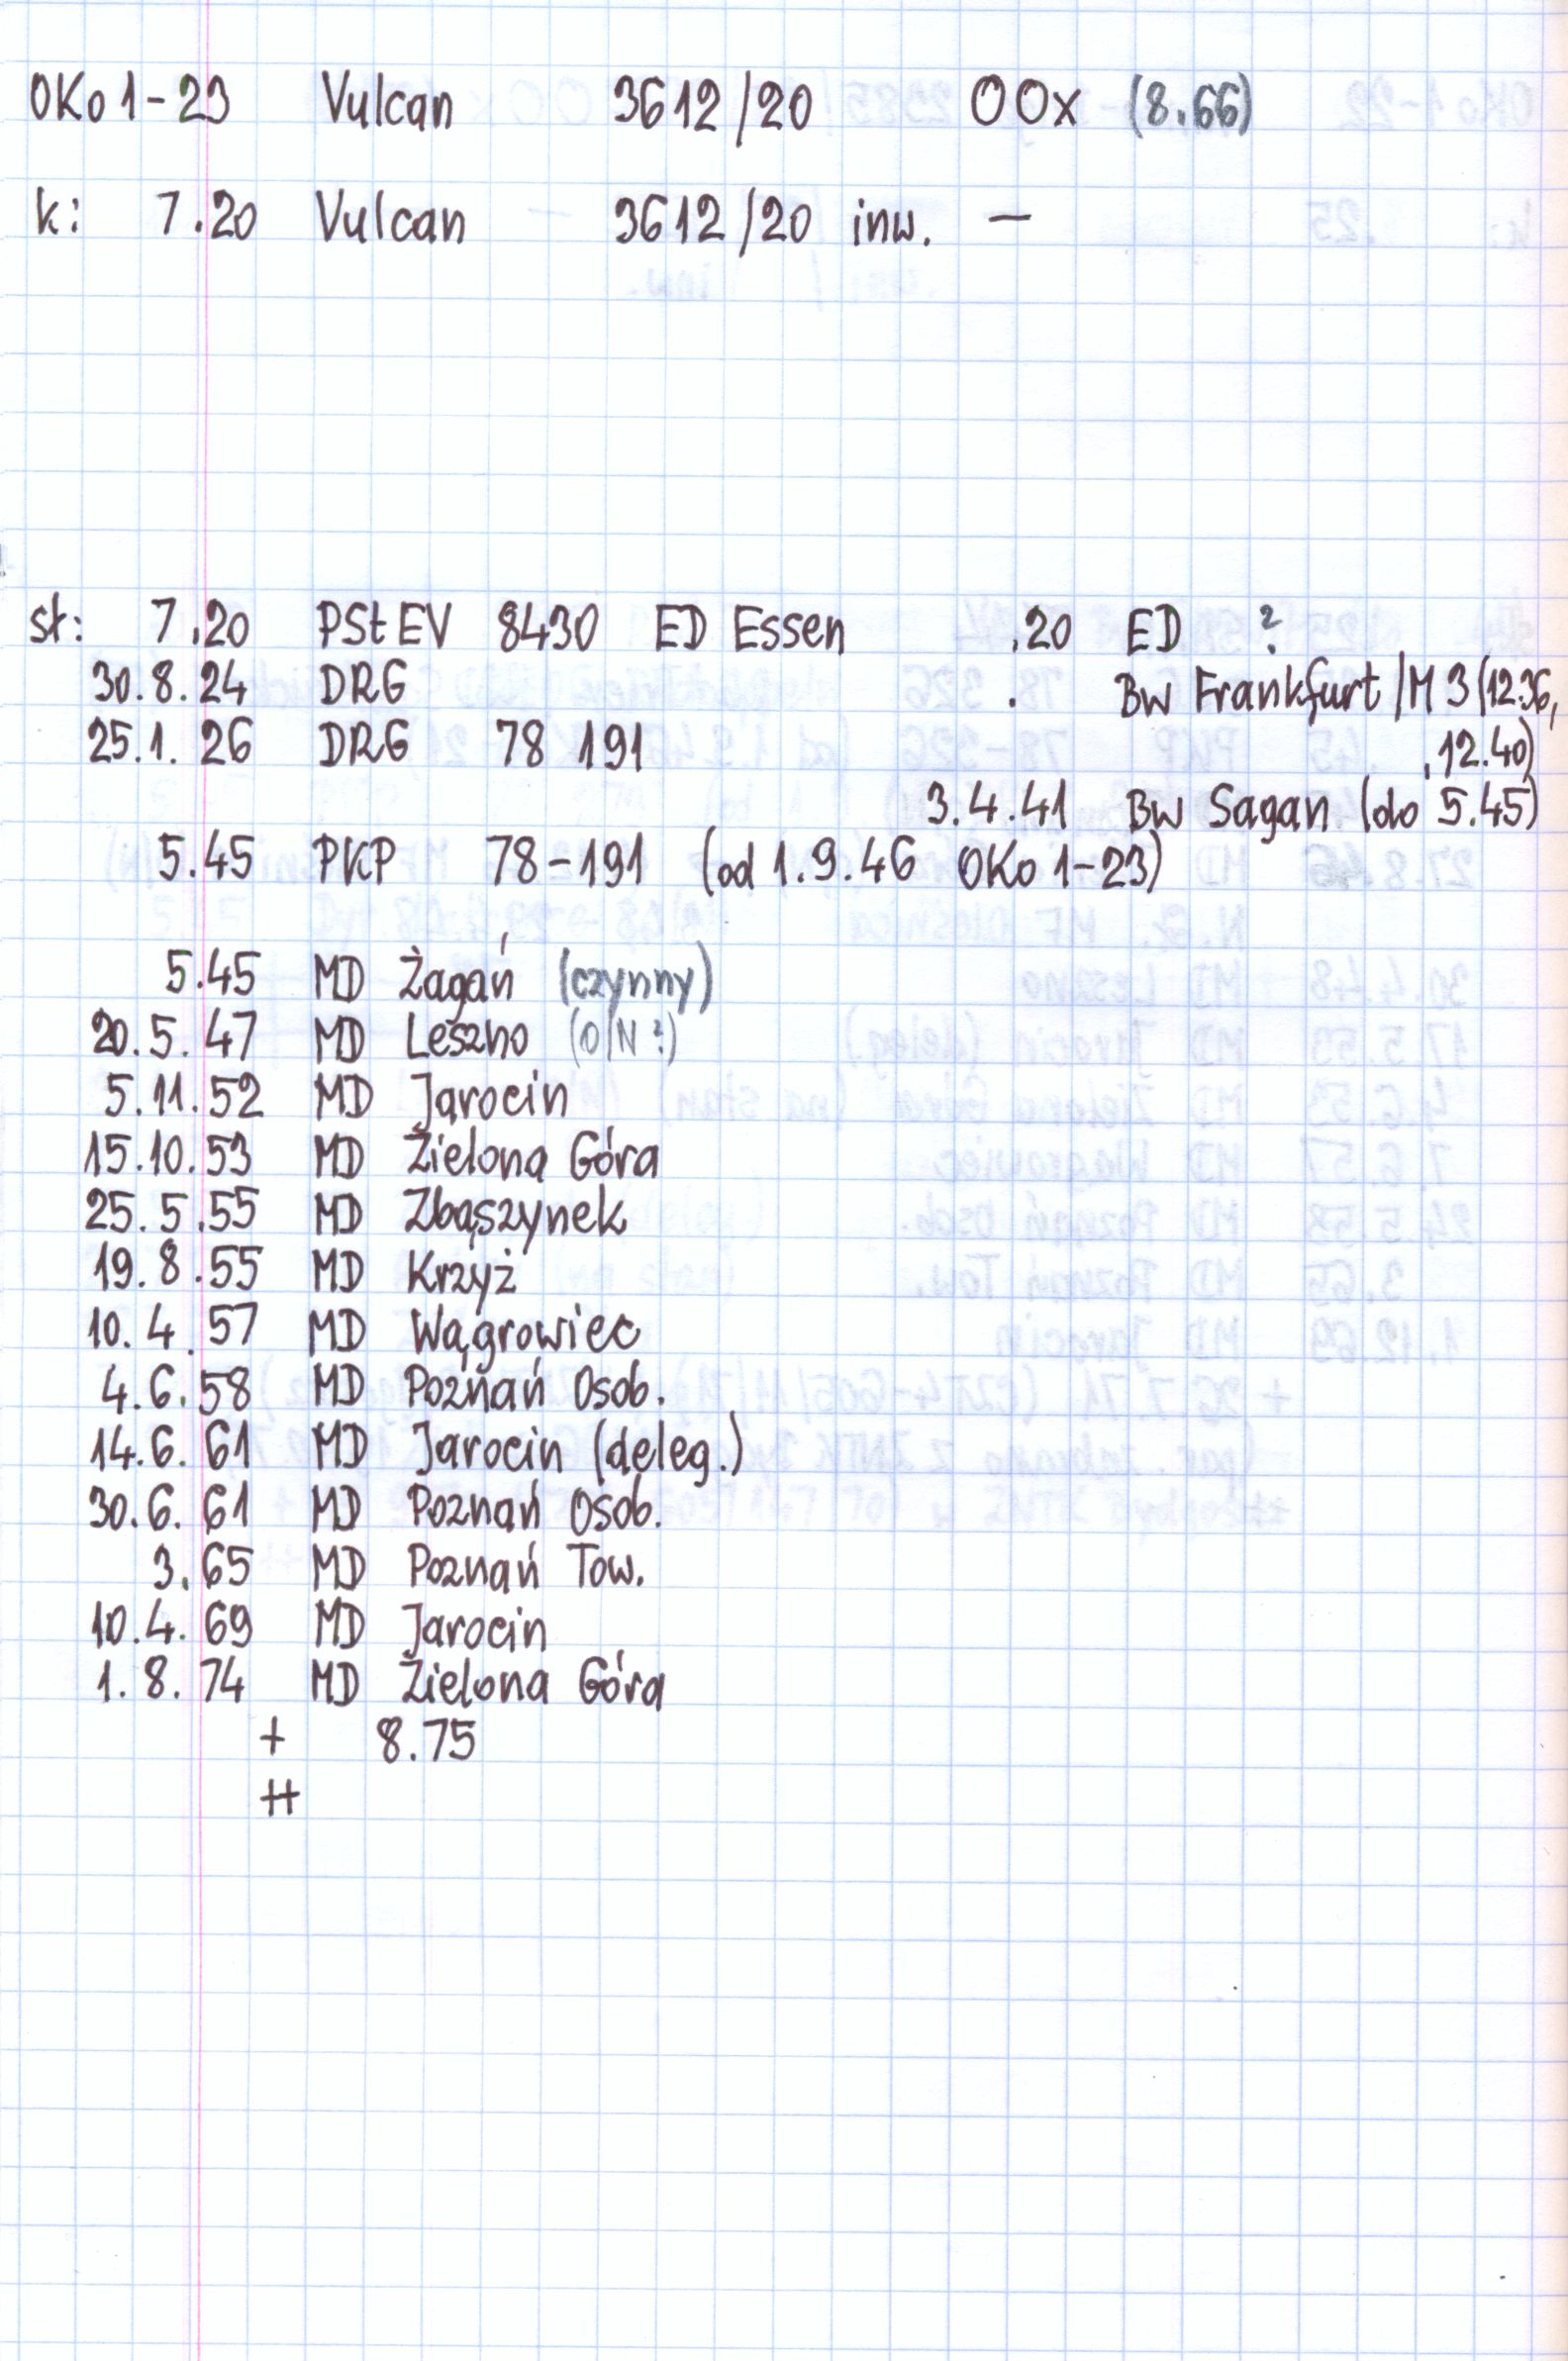 OKo 1-23 Vulcan 3612/20 OOx (8.66)
k: 7.20 Vulcan 3612/20 inw. —
st: 7.20 PStEV 8430 ED Essen .20 ED ?
30.8.24 DRG . Bw Frankfurt/M 3 (12.36,
25.1.26 DRG 78 191 , 12.40)
3.4.41 Bw Sagan (do 5.45)
5.45 PKP 78-191 (od 1.9.46 OKo 1-23)
5.45 MD Żagań (czynny)
20.5.47 MD Leszno (O/N?)
5.11.52 MD Jarocin
15.10.53 MD Zielona Góra
25.5.55 MD Zbąszynek
19.8.55 MD Krzyż
10.4.57 MD Wągrowiec
4.6.58 MD Poznań Osob.
14.6.61 MD Jarocin (deleg.)
30.6.61 MD Poznań Osob.
3.65 MD Poznań Tow.
10.4.69 MD Jarocin
1.8.74 MD Zielona Góra
+ 8.75
++